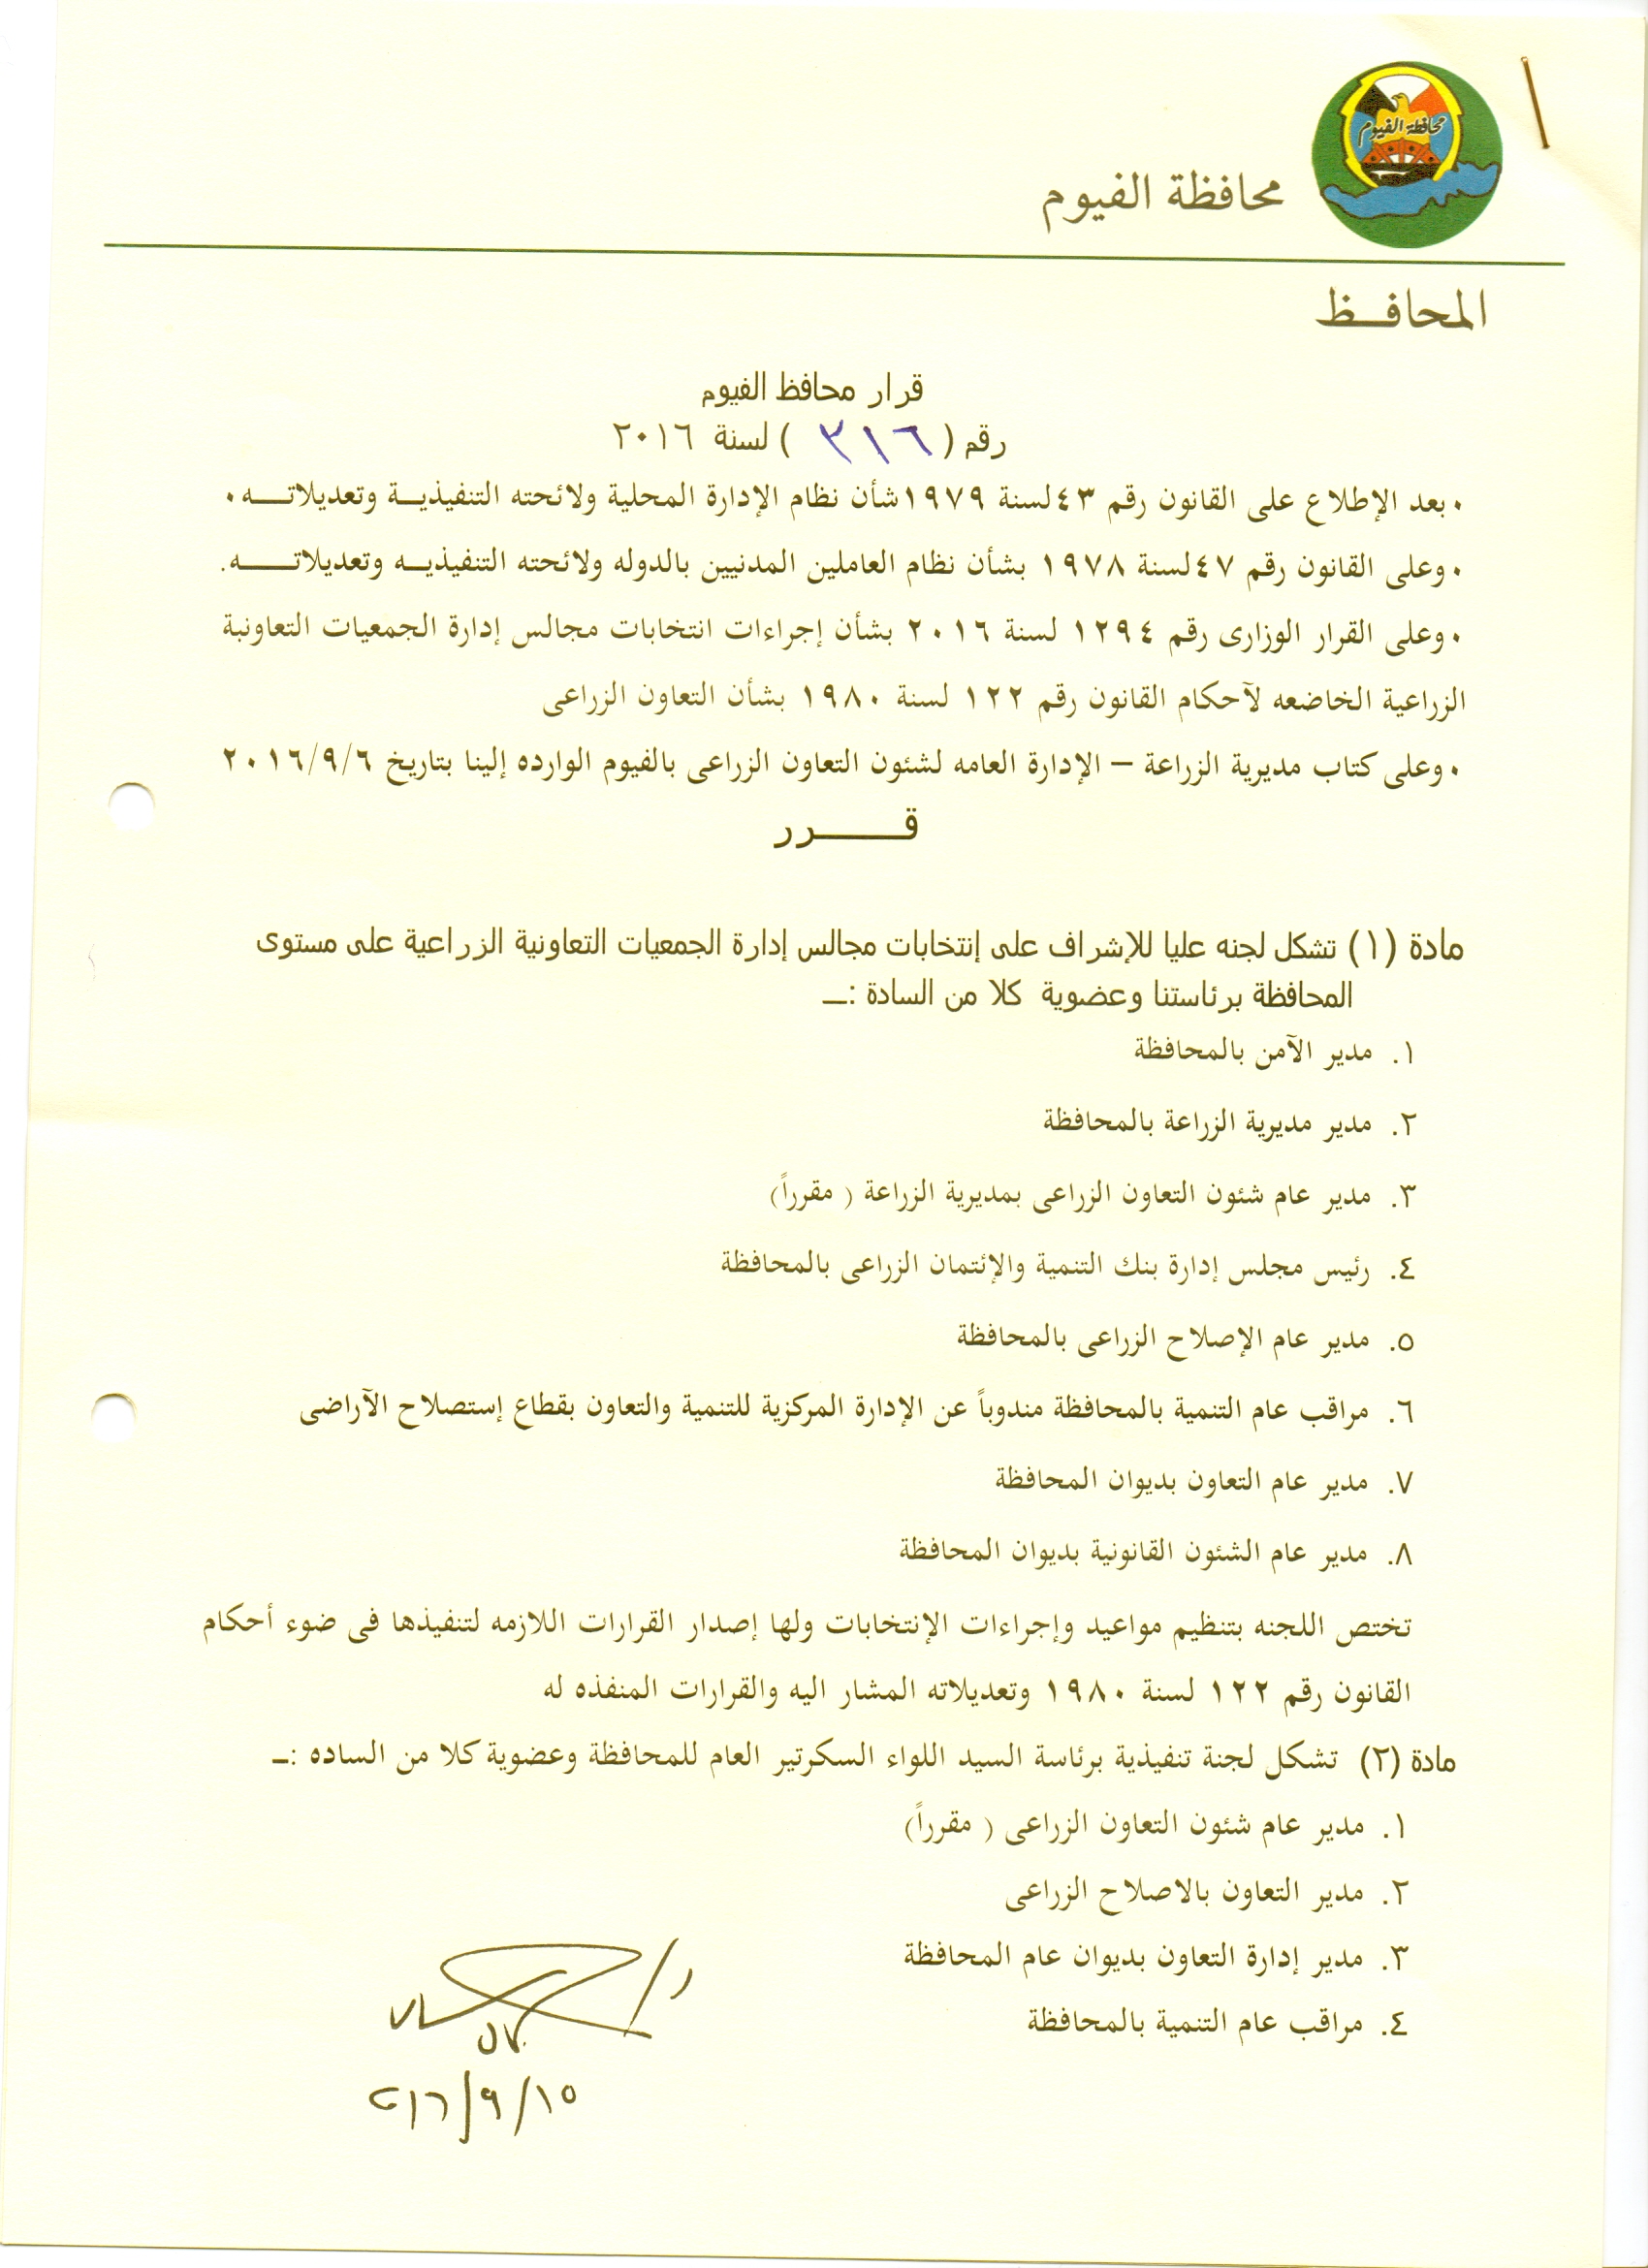 محافظة الفيوم
محافظة الفيوم
المحافـــظ
قرار محافظ الفيوم
رقم ( ٣١٦ ) لسنة ٢٠١٦
• بعد الإطلاع على القانون رقم ٤٣لسنة ١٩٧٩شأن نظام الإدارة المحلية ولائحته التنفيذيـــة وتعديلاتــــه •
• وعلى القانون رقم ٤٧لسنة ١٩٧٨ بشأن نظام العاملين المدنيين بالدوله ولائحته التنفيذيـــه وتعديلاتــــه.
• وعلى القرار الوزارى رقم ١٢٩٤ لسنة ٢٠١٦ بشأن إجراءات انتخابات مجالس إدارة الجمعيات التعاونبة
الزراعية الخاضعه لآحكام القانون رقم ١٢٢ لسنة ١٩٨٠ بشأن التعاون الزراعى
• وعلى كتاب مديرية الزراعة – الإدارة العامه لشئون التعاون الزراعى بالفيوم الوارده إلينا بتاريخ ٢٠١٦/٩/٦
قــــــرر
مادة (١) تشكل لجنه عليا للإشراف على إنتخابات مجالس إدارة الجمعيات التعاونية الزراعية على مستوى
المحافظة برئاستنا وعضوية كلا من السادة :ــ
١. مدير الآمن بالمحافظة
٢. مدير مديرية الزراعة بالمحافظة
٣. مدير عام شئون التعاون الزراعى بمديرية الزراعة ( مقرراً)
٤. رئيس مجلس إدارة بنك التنمية والإئتمان الزراعى بالمحافظة
٥. مدير عام الإصلاح الزراعى بالمحافظة
٦. مراقب عام التنمية بالمحافظة مندوباً عن الإدارة المركزية للتنمية والتعاون بقطاع إستصلاح الآراضى
٧. مدير عام التعاون بديوان المحافظة
٨. مدير عام الشئون القانونية بديوان المحافظة
تختص اللجنه بتنظيم مواعيد وإجراءات الإنتخابات ولها إصدار القرارات اللازمه لتنفيذها فى ضوء أحكام
القانون رقم ١٢٢ لسنة ١٩٨٠ وتعديلاته المشار اليه والقرارات المنفذه له
مادة (٢) تشكل لجنة تنفيذية برئاسة السيد اللواء السكرتير العام للمحافظة وعضوية كلا من الساده :ــ
١. مدير عام شئون التعاون الزراعى ( مقرراً)
٢. مدير التعاون بالاصلاح الزراعى
٣. مدير إدارة التعاون بديوان عام المحافظة
٤. مراقب عام التنمية بالمحافظة
٢٠١٦/٩/١٥